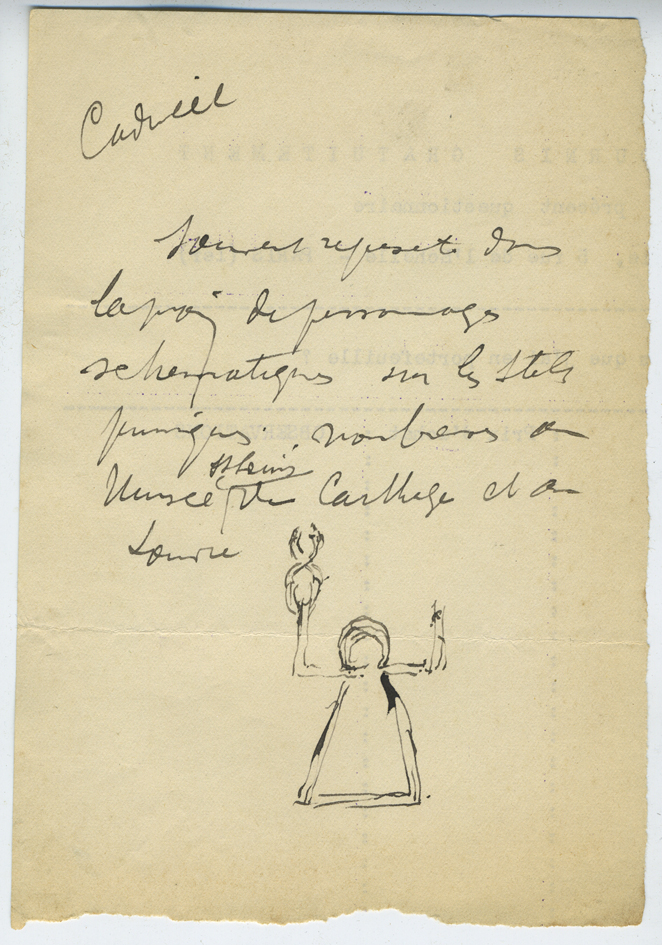 Souvent représenté dans
la main de personnages
schématiques sur les steles
puniques nombreuses au
Musée de Carthage et au
Louvre